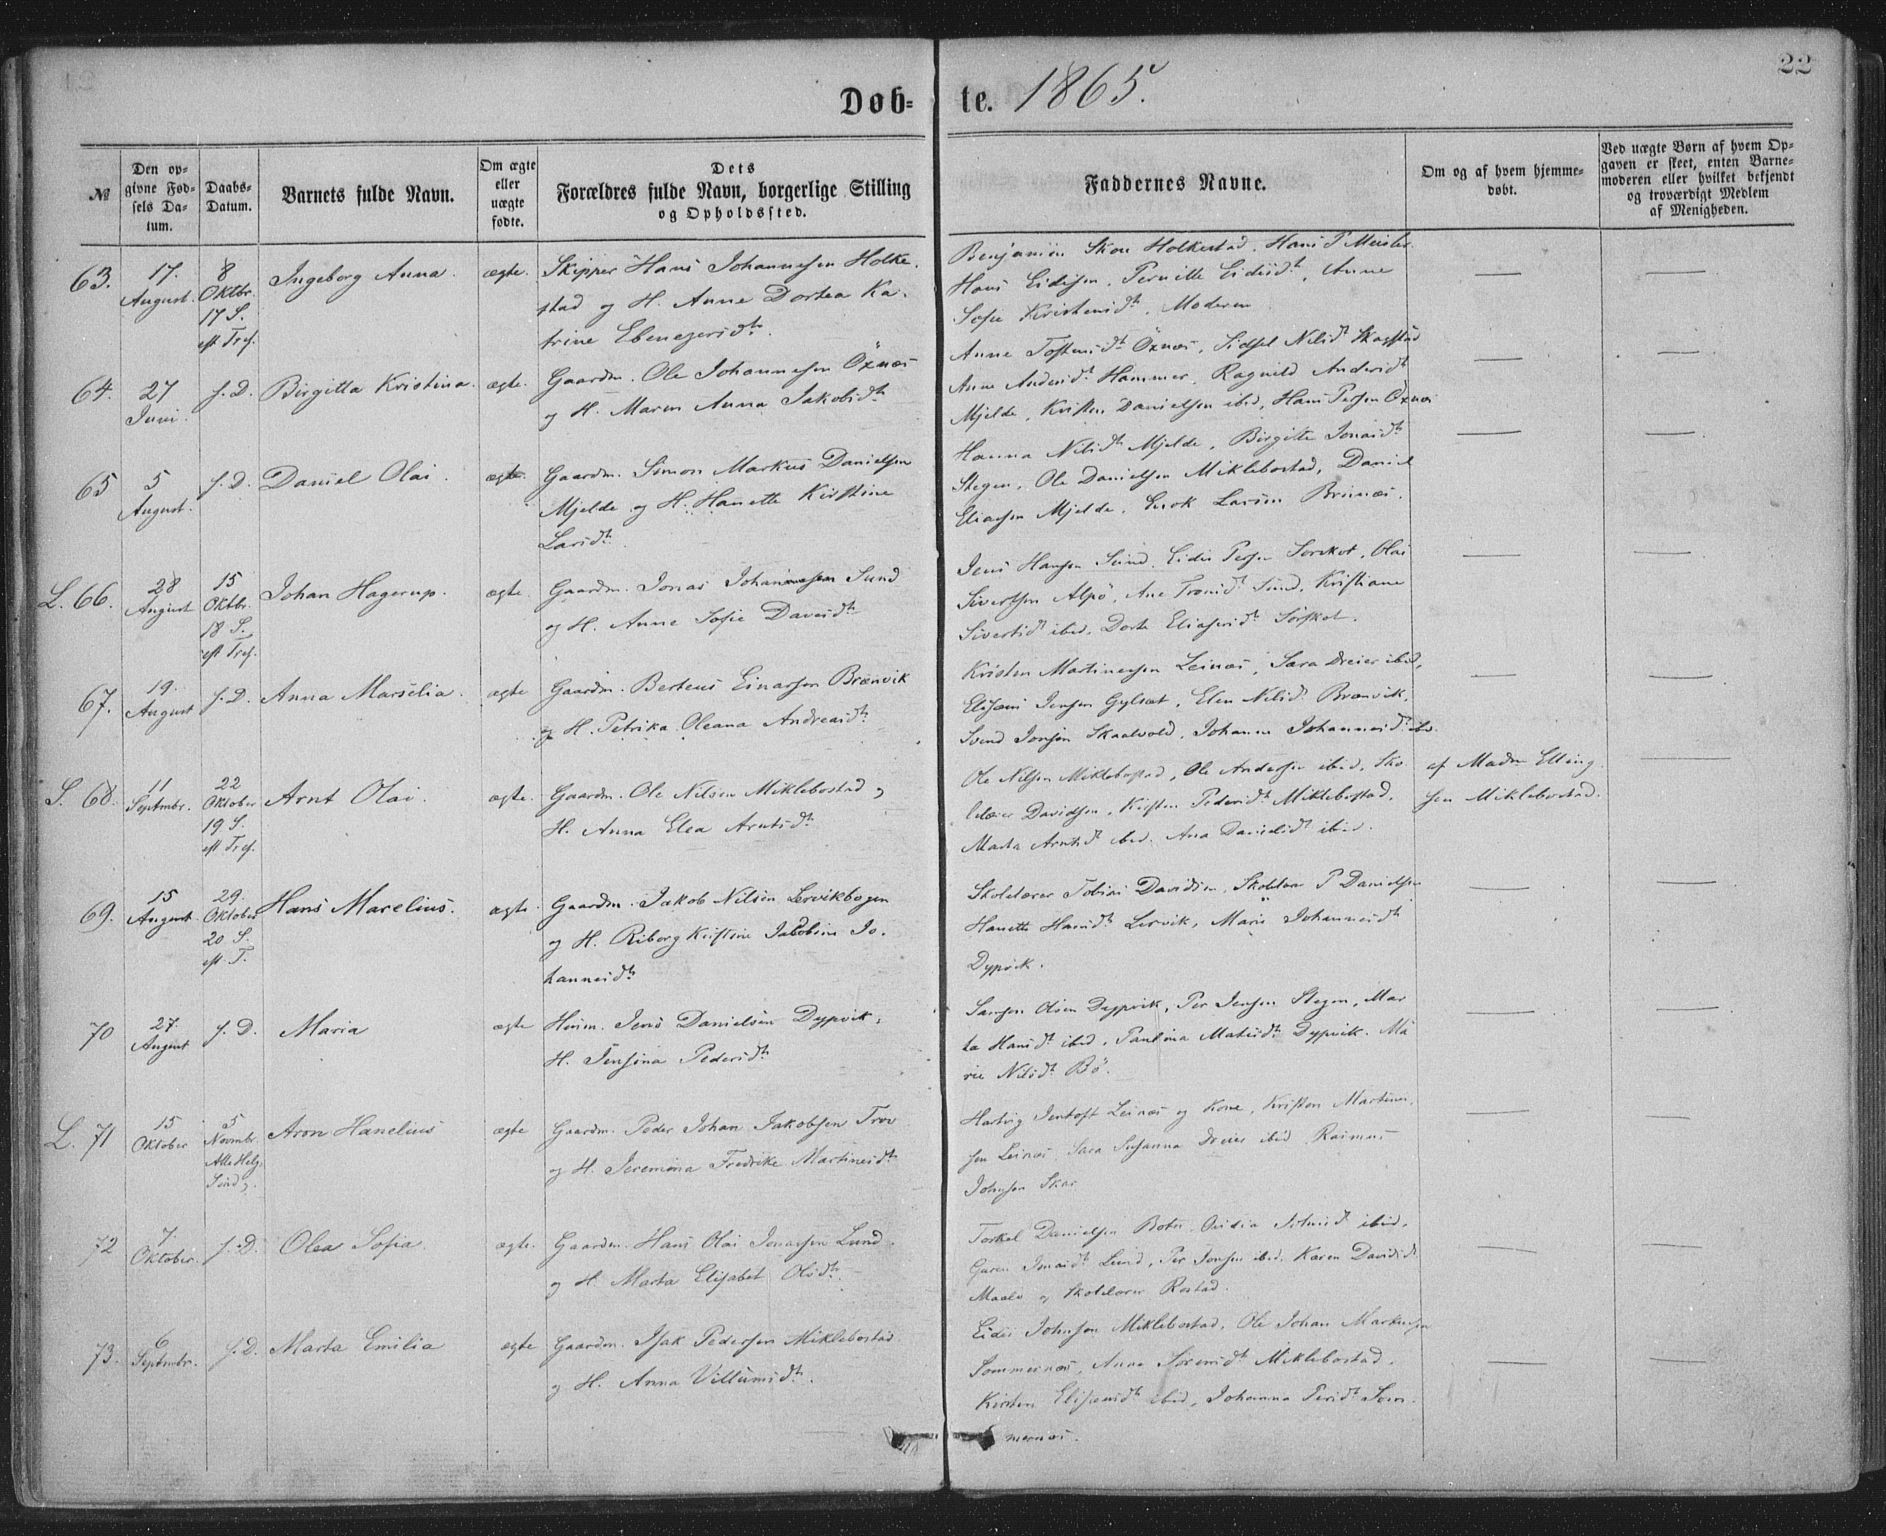 22
Døb-te. 1865.
№
Den opgivne Fødsels Datum.
Daabs-Datum.
Barnets fulde Navn.
Om ægte eller uægte fødte.
Dets Forældres fulde Navn, borgerlige Stilling og Opholdssted.
Faddernes Navne.
Om og af hvem hjemmedøbt.
Ved uægte Børn af hvem Opgaven er skeet, enten Barnemoderen eller hvilket bekjendt og troværdigt Medlem af Menigheden.
63. 17. August. 8 Oktbr. 17 S. eft Tref. Ingeborg Anna. ægte.
Skipper Hans Johannesen Holke-
stad og H. Anne Dortea Ka-
trine Ebenezersdt.
Benjamin Skou Holkestad, Hans P Meisler
Hans Eidisen, Pernille Eidisdt, Anne
Sofie Kristensdt, Moderen
64. 27 Juni. s. D. Birgitta Kristina. ægte.
Gaardm. Ole Johannesen Öxnæs
og H. Maren Anna Jakobsdt
Anne Tostensdt Öxnæs, Sidsel Nilsdt Skagstad
Anne Andersdt Hammer, Ragnild Andersdt
Mjelde, Kristen Danielsen ibid, Hans Persen Öxnæs
65 5 August. s. D. Daniel Olai. ægte.
Gaardm. Simon Markus Danielsen
Mjelde og H. Hanette Kirstine
Larsdt
Hanna Nilsdt Mjelde, Birgitte Jonasdt
Stegen, Ole Danielsen Miklebostad, Daniel
Eliassen Mjelde, Enok Larsen Brunæs.
L. 66. 28 August 15 Oktbr. 18 S. eft Tref. Johan Hagerup. ægte.
Gaardm. Jonas Johannesen Sund
og H. Anne Sofie Davidsdt
Jens Hansen Sund, Eidis Persen Sørskot, Olai
Sivertsen Alpö, Ane Tronsdt Sund, Kristiane
Sivertsdt ibid, Dorte Eliasersdt Sørskot.
67. 19. August s. D. Anna Marselia. ægte
Gaardm. Berteus Einarsen Brænvik
og H. Petrika Oleana Andreasdt
Kristen Martinussen Leinæs, Sara Dreier ibid,
Elisæus Jensen Gylset, Elen Nilsdt Brænvik,
Svend Jonsen Skaalvold, Johanna Johannesdt ibid.
S. 68. 11 Septmbr. 22 Oktober 19 S. eft Tref. Arnt Olai. ægte.
Gaardm. Ole Nilsen Miklebostad og
H. Anna Elea Arntsdt
Ole Nilsen Miklebostad, Ole Andersen ibid, Sko-
lelærer Davidsen, Kirsten Pedersdt Miklebostad,
Marta Arntsdt ibid. Ana Danielsdt ibid.
af Madm Elling-
sen Miklebostad.
69. 15 August 29 Oktober 20 S. eft. T. Hans Marelius. ægte.
Gaardm. Jakob Nilsen Lervikbogen
og H. Riborg Kirstine Jakobine Jo-
hannesdt
Skolelærer Tobias Davidsen, Skolelær P Danielsen
Hanette Hansdt Lervik, Marie Johannesdt
Dypvik.
70 27. August s. D. Maria ægte
Huusm. Jens Danielsen Dypvik,
H. Jensina Pedersdt
Olsen Dypvik, Per Jensen Stegen, Mar-
ta Hansdt ibid, Paulina Matisdt Dypvik. Ma-
rie Nilsdt Bö.
L. 71 15 Oktober 5 Novmbr. Alle Helg. Sönd. Aron Hanelius ægte
Gaardm. Peder Johan Jakobsen Trov
og H. Jeremina Fredrike Martinesdt
Hartvig Jentoft Leinæs og Kone, Kristen Martinus-
sen Leinæs, Sara Susanna Dreier ibid, Rasmus
Johnsen Skar
72 7 Oktober. s. D. Olea Sofia. ægte.
Gaardm. Hans Olai Jonassen Lund
og H. Marta Elisabet Olsdt.
Torkel Danielsen Botn, ibid,
Guren Jonasdt Lund, Per Jonsen ibid, Karen Davidsdt
Maalö og Skolelærer Rostad.
73. 6 Septmbr. s. D. Marta Emilia ægte
Gaardm. Isak Pedersen Miklebostad
og H. Anna Villumsdt.
Eidis Johnsen Miklebostad, Ole Johan Markussen
Sommernæs, Anna Sörensdt Miklebostad.
Kirsten Elisæusdt ibid, Johanna Persdt Som-
mernæs.